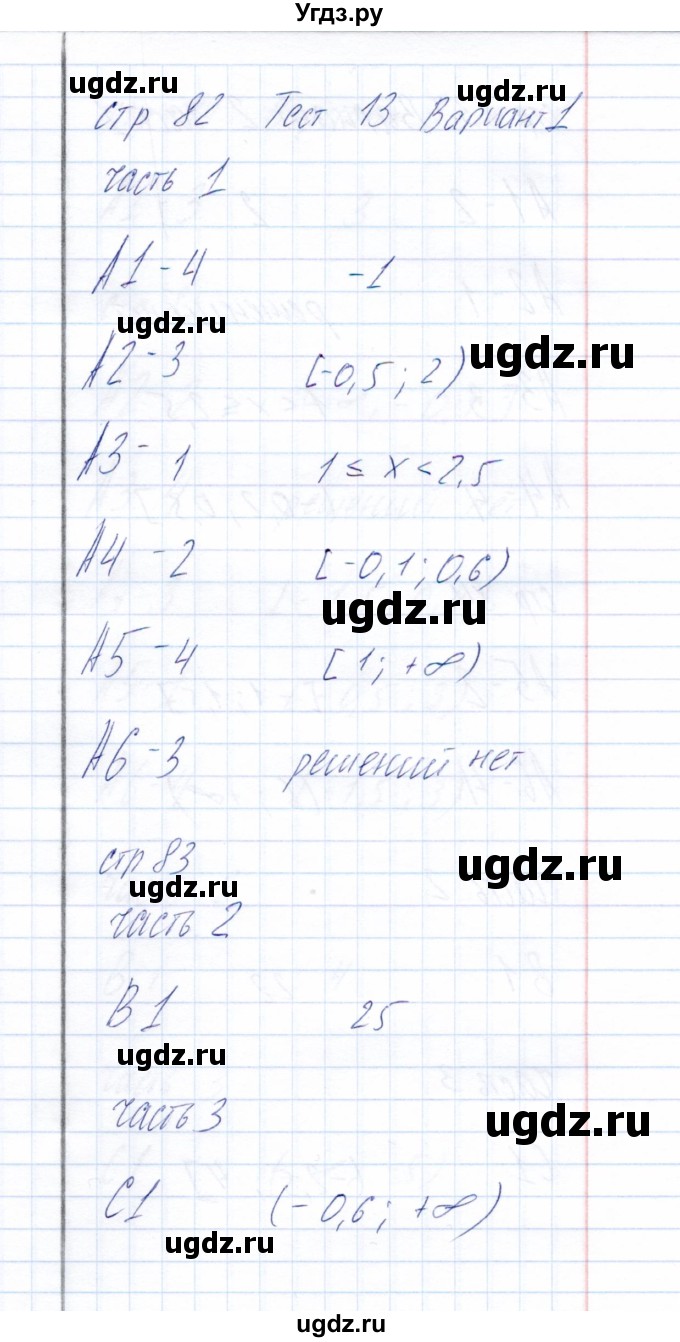 Угдз.ру
ugdz.ru
ugdz.ru
стр 82 Тест 13 Вариант 1
часть 1
А1 - 4 -1
ugdz.ru
ugdz.ru
А2 - 3 [-0,5; 2)
А3 - 1 1 ≤ x < 2,5
А4 - 2 [-0,1; 0,6)
ugdz.ru
А5 - 4 [1; +∞)
А6 - 3 решений нет
стр 83
ugdz.ru
ugdz.ru
часть 2
В1 25
ugdz.ru
часть 3
ugdz.ru
С1 (-0,6; +∞)
ugdz.ru
ugdz.ru